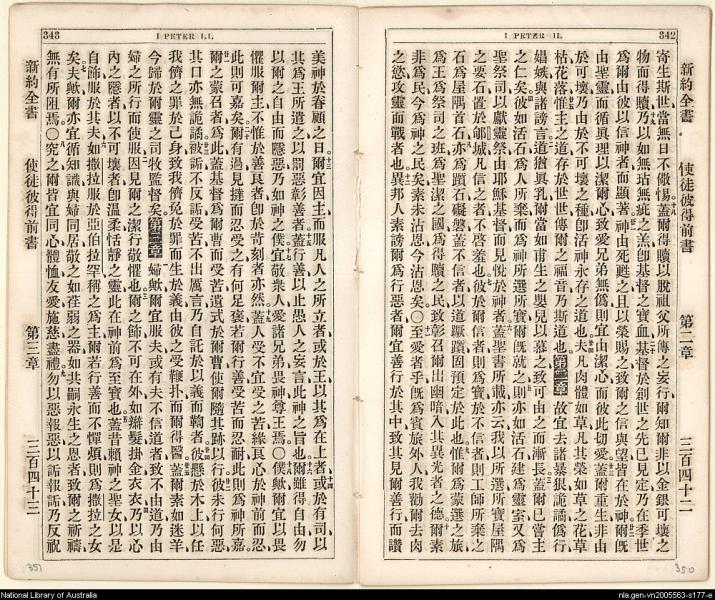 342
I PETER II.
新約全書
使徒彼得前書
第二章
三百四十二
寄生斯世當無日不儆惕蓋爾得贖以脫祖父所傳之妄行爾知爾非以金銀可壞之
物而得贖乃以如無玷無疵之羔卽基督之寶血基督於創世之先已見定乃在季世
爲爾由彼以信神者而顯著神由死甦之且以榮賜之致爾之信與望皆在於神爾旣
由聖靈而循眞理以潔爾心致愛兄弟無僞則宜由潔心而彼此切愛蓋爾重生非由
於可壞乃由於不可壞之種卽活神永存之道也夫凡肉體如草凡其榮如草之花草
枯花落惟主之道存於世世傳爾之福音乃斯道也第二章故宜去諸暴狠詭譎僞行
娼嫉與諸謗言道猶眞乳爾當如甫生之嬰兒以慕之致可由之而漸長蓋爾已嘗主
之仁矣彼如活石爲人所棄而爲神所選所寶爾旣就之則亦如活石建爲靈室又爲
聖祭司以獻靈祭由耶穌基督而見悅於神者蓋聖書所載亦云我以所選所寶屋隅
之要石置於郇城凡信之者不啓羞也彼於爾信者則爲寶於不信者則工師所棄之
石爲屋隅首石亦爲躓石礙磐蓋不信者以道蹶躓固預定於此也惟爾爲蒙選之族
爲王爲祭司之班爲聖潔之國爲得贖之民致彰召爾出幽暗入其異光者之德爾素
非爲民今爲神之民矣素未沾恩今沾恩矣〇至愛者乎旣爲賓旅外人我勸爾去肉
之慾攻靈而戰者也異邦人素謗爾爲行惡者爾宜善行於其中致其見爾善行而讚
350
343
I PETER I.I.
美神於眷顧之日爾宜因主而服凡人之所立者或於王以其爲在上者或於有司以
其爲王所遣之以罰惡彰善者蓋行善以止愚人之妄言此神之旨也爾雖得自由勿
以爾之自由而隱惡乃如神之僕宜敬衆人愛諸兄弟畏神尊王焉〇僕歟爾宜以畏
懼服爾主不惟於善良者卽於苛刻者亦然蓋人受不宜受之苦緣良心於神前而忍
此則可嘉矣爾有過見撻而忍受之有何足褒若爾行善受苦而忍耐此則爲神所嘉
爾之蒙召者爲此蓋基督爲爾曹而受苦遺式於爾曹使爾隨其跡以行彼未行何惡
其口亦無詭譎被詬不反詬受苦不出厲言乃自託於以義而鞫者彼懸於木上以任
我儕之罪於己身致我儕免於罪而生於義由彼之受鞭扑而爾得醫蓋爾素如迷羊
今歸於爾靈之司牧監督矣第三章婦歟爾宜服夫或有夫不信道者致不由道乃由
婦之所行而使服因見爾之潔行敬懼也爾之飾不可在外如辮髮掛金衣衣乃以心
內之隱者以不可壞者卽溫柔恬靜之靈此在神前爲至寶也蓋昔賴神之聖女以是
自飾服於其夫如撒拉服於亞伯拉罕稱之爲主爾若行善而不憚煩則爲撒拉之女
矣夫歟爾亦宜循知識與婦同居敬之如荏弱之器如其嗣永生之恩者致爾之祈禱
無有所阻焉〇究之爾皆宜同心體恤友愛施慈盡禮勿以惡報惡以詬報詬乃反祝
新約全書
使徒彼得前書
第三章
三百四十三
351
National Library of Australia
nla.gen-vn2005563-s177-e